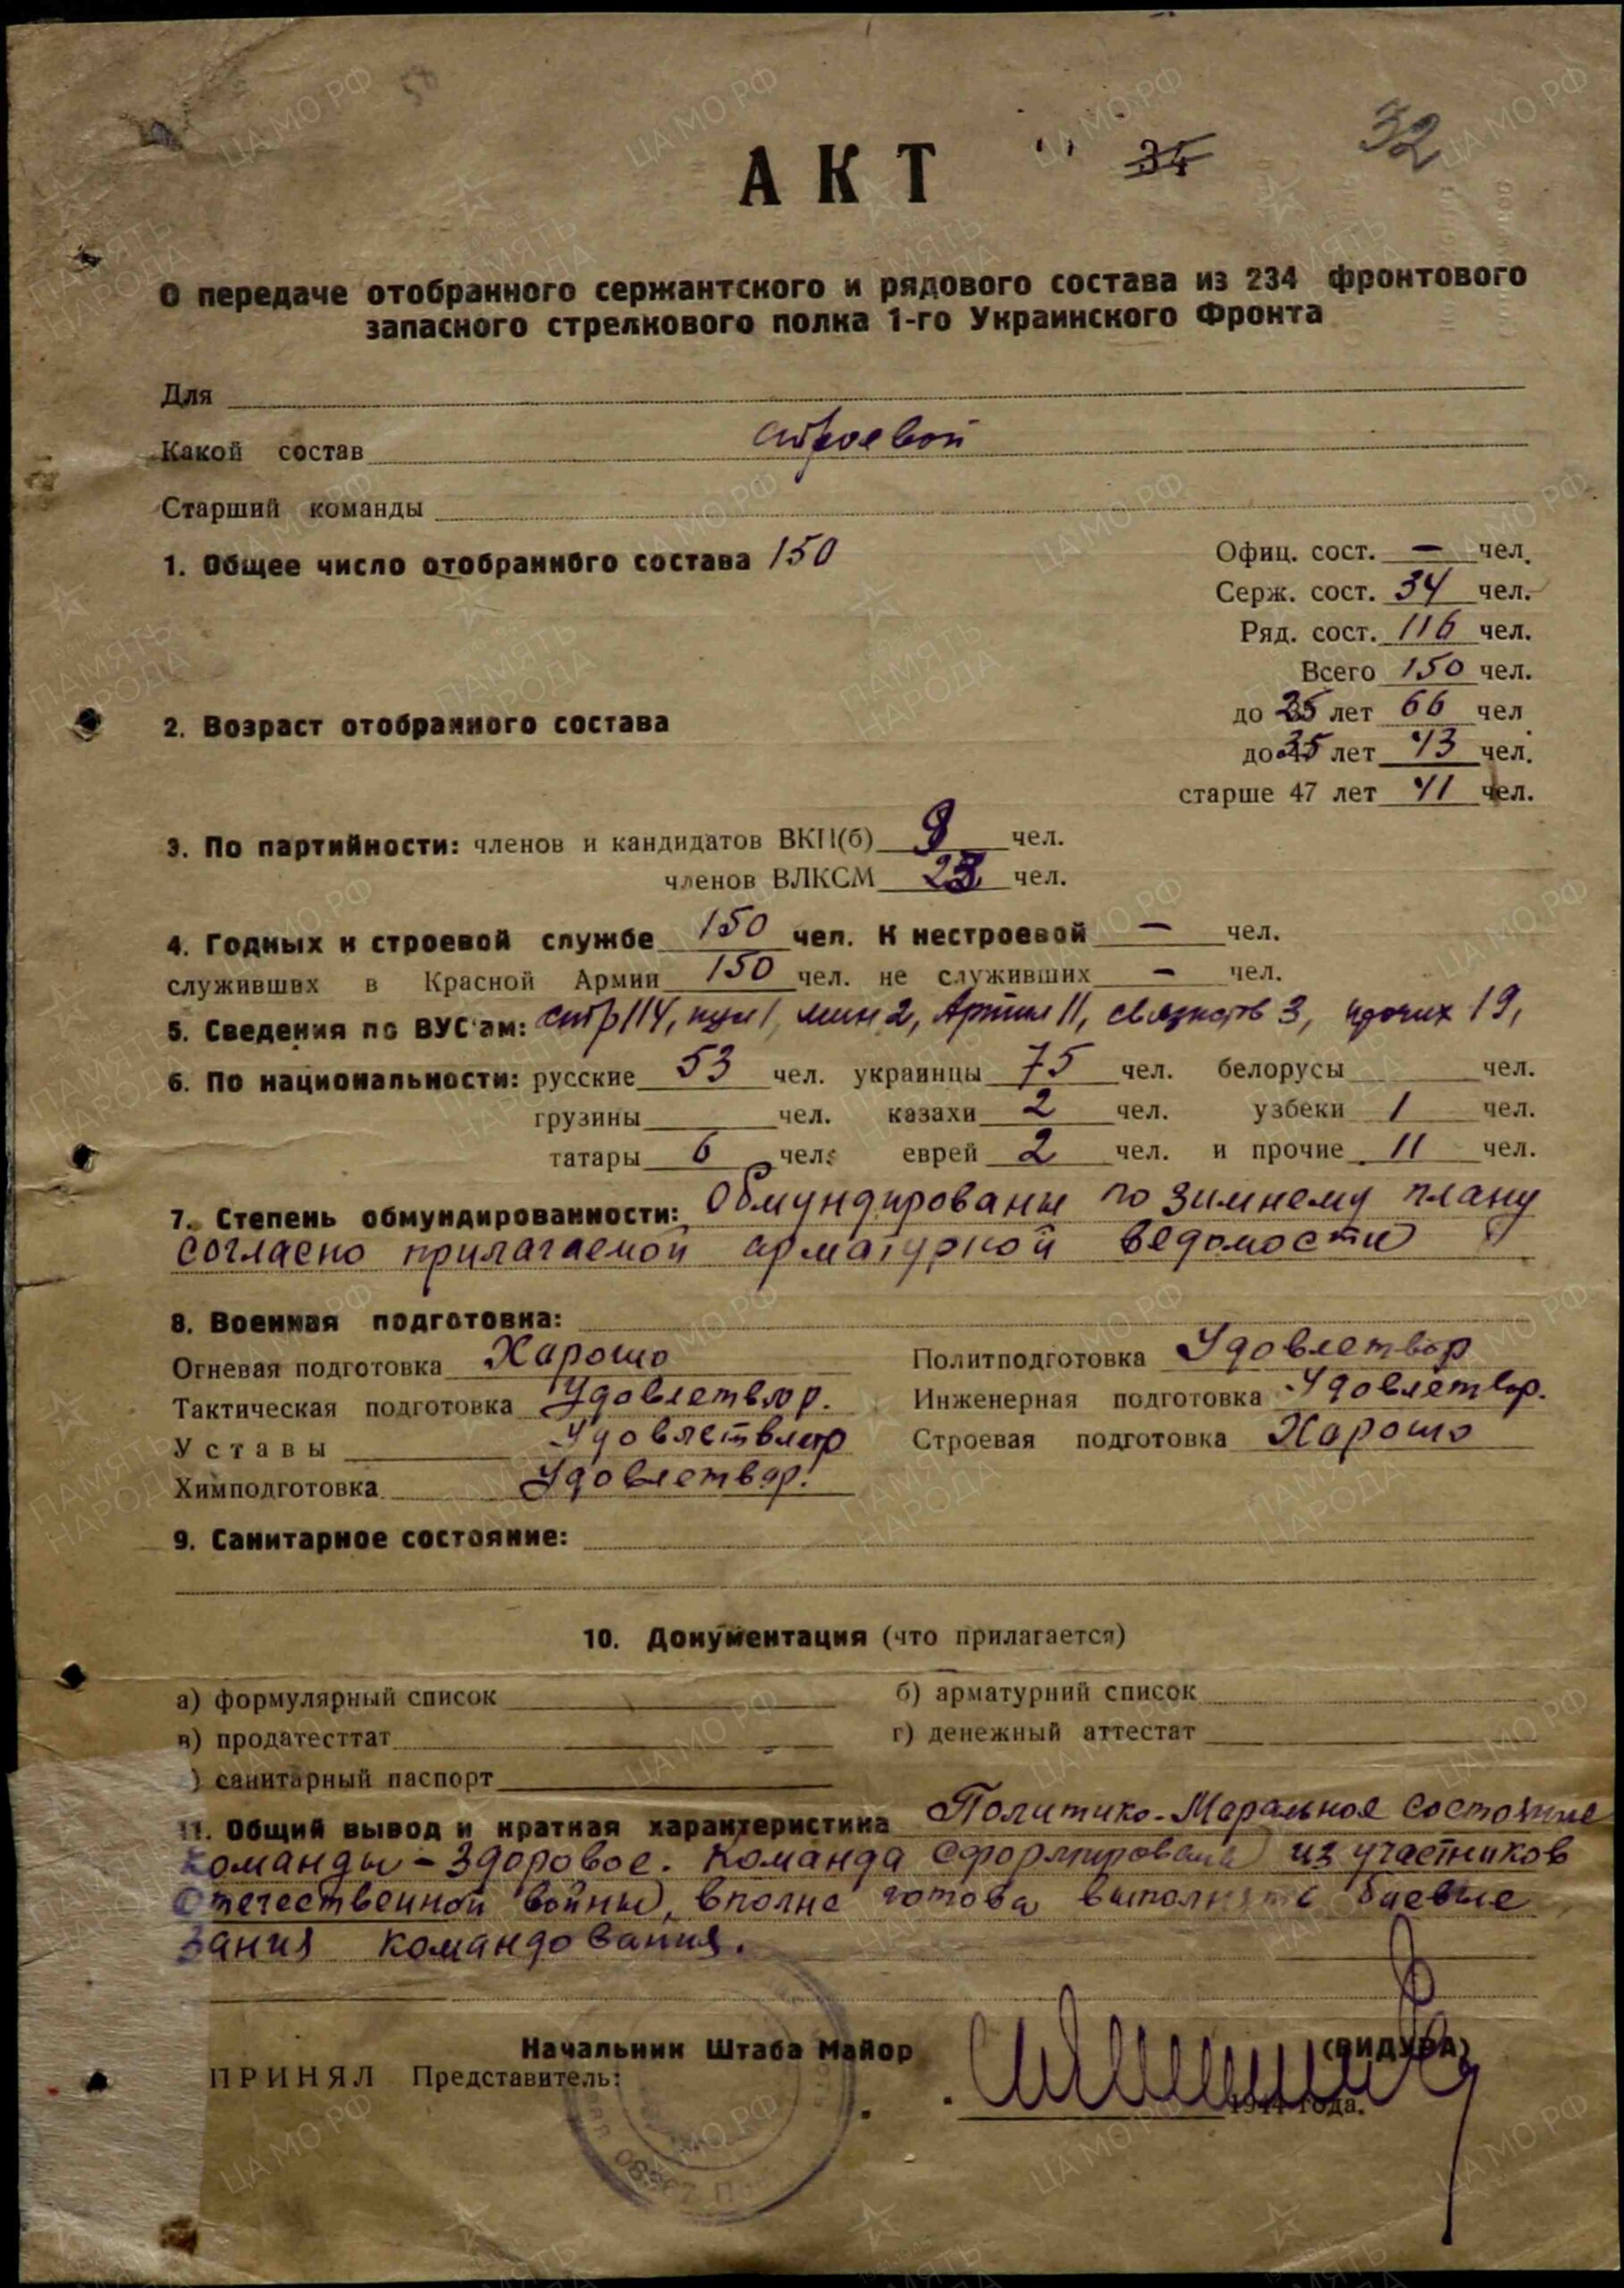 50
32
АКТ 34
О передаче отобранного сержантского и рядового состава из 234 фронтового
запасного стрелкового полка 1-го Украинского Фронта
Для
Какой состав строевой
Старший команды
1. Общее число отобранного состава 150
Офиц. сост. — чел.
Серж. сост. 34 чел.
Ряд. сост. 116 чел.
Всего 150 чел.
2. Возраст отобранного состава
до 25 лет 66 чел
до 35 лет 43 чел.
старше 47 лет 41 чел.
3. По партийности: членов и кандидатов ВКП(б) 9 чел.
членов ВЛКСМ 23 чел.
4. Годных к строевой службе 150 чел. К нестроевой — чел.
служивших в Красной Армии 150 чел. не служивших — чел.
5. Сведения по ВУС'ам: стр 114, пул 1, мин 2, Артил 11, связистов 3, прочих 19,
6. По национальности: русские 53 чел. украинцы 75 чел. белорусы чел.
грузины чел. казахи 2 чел. узбеки 1 чел.
татары 6 чел. еврей 2 чел. и прочие 11 чел.
7. Степень обмундированности: Обмундированы по зимнему плану
согласно прилагаемой арматурной ведомости
8. Военная подготовка:
Огневая подготовка Харошо Политподготовка Удовлетвор
Тактическая подготовка Удовлетвор. Инженерная подготовка Удовлетвор.
Уставы Удовлетвор Строевая подготовка Харошо
Химподготовка Удовлетвор.
9. Санитарное состояние:
10. Документация (что прилагается)
а) формулярный список б) арматурний список
в) продатесттат г) денежный аттестат
) санитарный паспорт
11. Общий вывод и краткая характеристика Политико-Маральное состояние
команды - здоровое. Команда сформирована из участников
Отечественной войны, вполне готова выполнять баевые
зания командования.
Начальник Штаба Майор (ВИДУВА)
ПРИНЯЛ Представитель:
1944 года.
ЦА МО РФ
ПАМЯТЬ НАРОДА